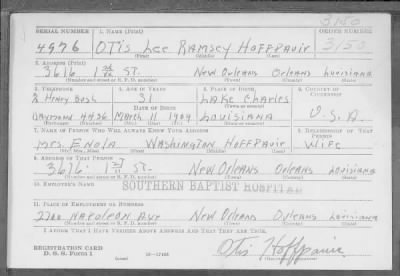 3150
SERIAL NUMBER 1. NAME (Print) ORDER NUMBER
4976 OTIS Lee RAMSEY HOFFPAUIR 3150
(First) (Middle) (Last)
2. ADDRESS (Print)
3616 ST. NEW ORLEANS ORLEANS LOUISIANA
(Number and street or R. F. D. number) (Town) (County) (State)
3. TELEPHONE 4. AGE IN YEARS 5. PLACE OF BIRTH 6. COUNTRY OF CITIZENSHIP
% Henry Bosh 31 LAKE CHARLES
DATE OF BIRTH (Town or county)
RAYMOND 4436 MARCH 11 1909 LOUISIANA U.S.A.
(Exchange) (Number) (Mo.) (Day) (Yr.) (State or country)
7. NAME OF PERSON WHO WILL ALWAYS KNOW YOUR ADDRESS 8. RELATIONSHIP OF THAT PERSON
MRS. ENOLA WASHINGTON HOFFPAUIR WIFE
(Mr., Mrs., Miss) (First) (Middle) (Last)
9. ADDRESS OF THAT PERSON
3616 ST. NEW ORLEANS ORLEANS LOUISIANA
(Number and street or R. F. D. number) (Town) (County) (State)
10. EMPLOYER'S NAME
SOUTHERN BAPTIST HOSPITAL
11. PLACE OF EMPLOYMENT OR BUSINESS
2700 NAPOLEON AVE NEW ORLEANS ORLEANS LOUISIANA
(Number and street or R. F. D. number) (Town) (County) (State)
I AFFIRM THAT I HAVE VERIFIED ABOVE ANSWERS AND THAT THEY ARE TRUE.
REGISTRATION CARD
D. S. S. Form 1 16—17105 Otis Hoffpauir
(Registrant's signature)